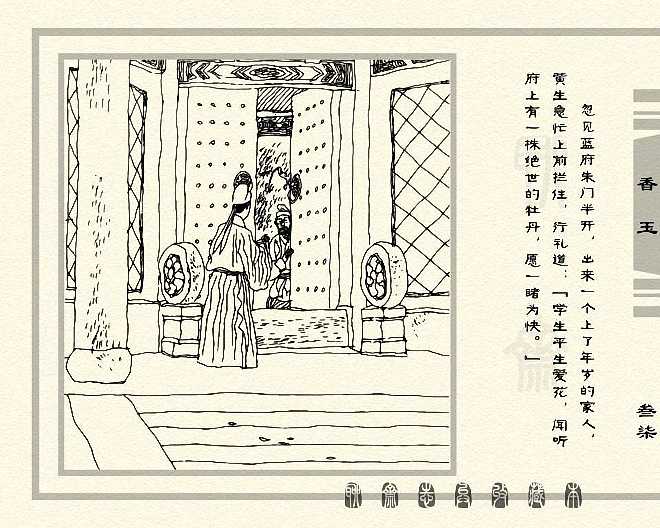 香玉
叁柒
忽见蓝府朱门半开，出来一个上了年岁的家人，
黄生急忙上前拦住，行礼道：「学生平生爱花，闻听
府上有一株绝世的牡丹，愿一睹为快。」